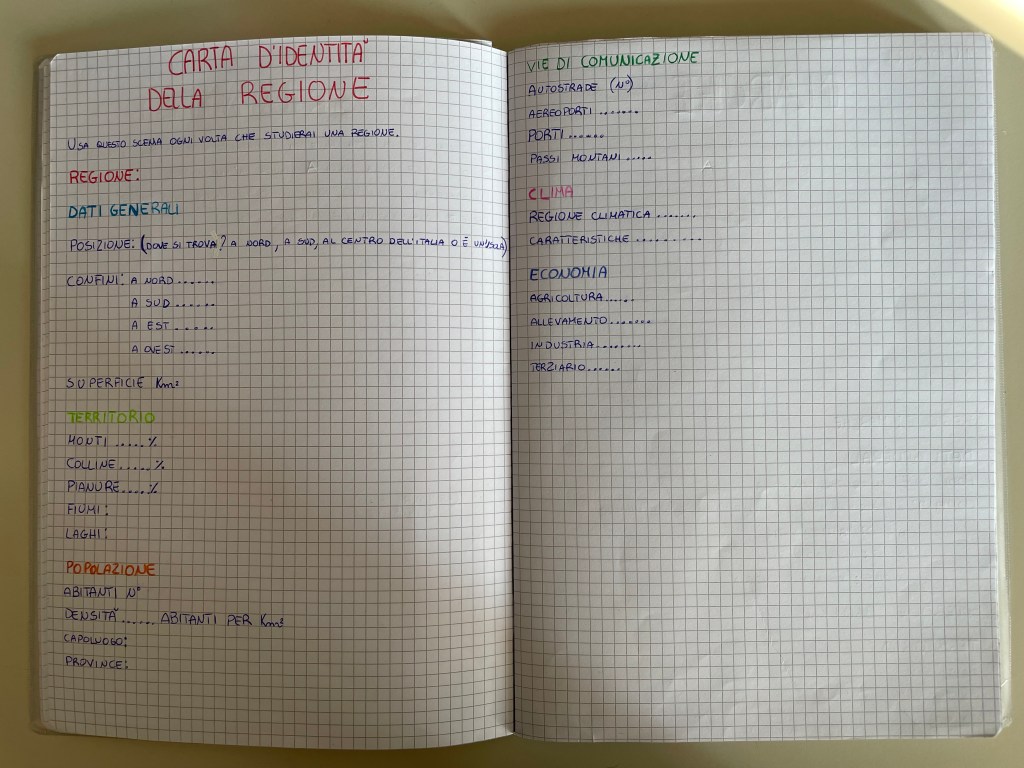 CARTA D'IDENTITÀ
DELLA REGIONE
USA QUESTO SCEMA OGNI VOLTA CHE STUDIERAI UNA REGIONE.
REGIONE:
DATI GENERALI
POSIZIONE: (DOVE SI TROVA? A NORD, A SUD, AL CENTRO DELL'ITALIA O È UN'ISOLA)
CONFINI: A NORD......
A SUD......
A EST.....
A OVEST......
SUPERFICIE Km²
TERRITORIO
MONTI .....%
COLLINE.....%
PIANURE....%
FIUMI:
LAGHI:
POPOLAZIONE
ABITANTI N°
DENSITÀ...... ABITANTI PER Km²
CAPOLUOGO:
PROVINCE:
VIE DI COMUNICAZIONE
AUTOSTRADE (N°)
AEREOPORTI .......
PORTI ......
PASSI MONTANI .....
CLIMA
REGIONE CLIMATICA .......
CARATTERISTICHE ..........
ECONOMIA
AGRICOLTURA.....
ALLEVAMENTO........
INDUSTRIA........
TERZIARIO......